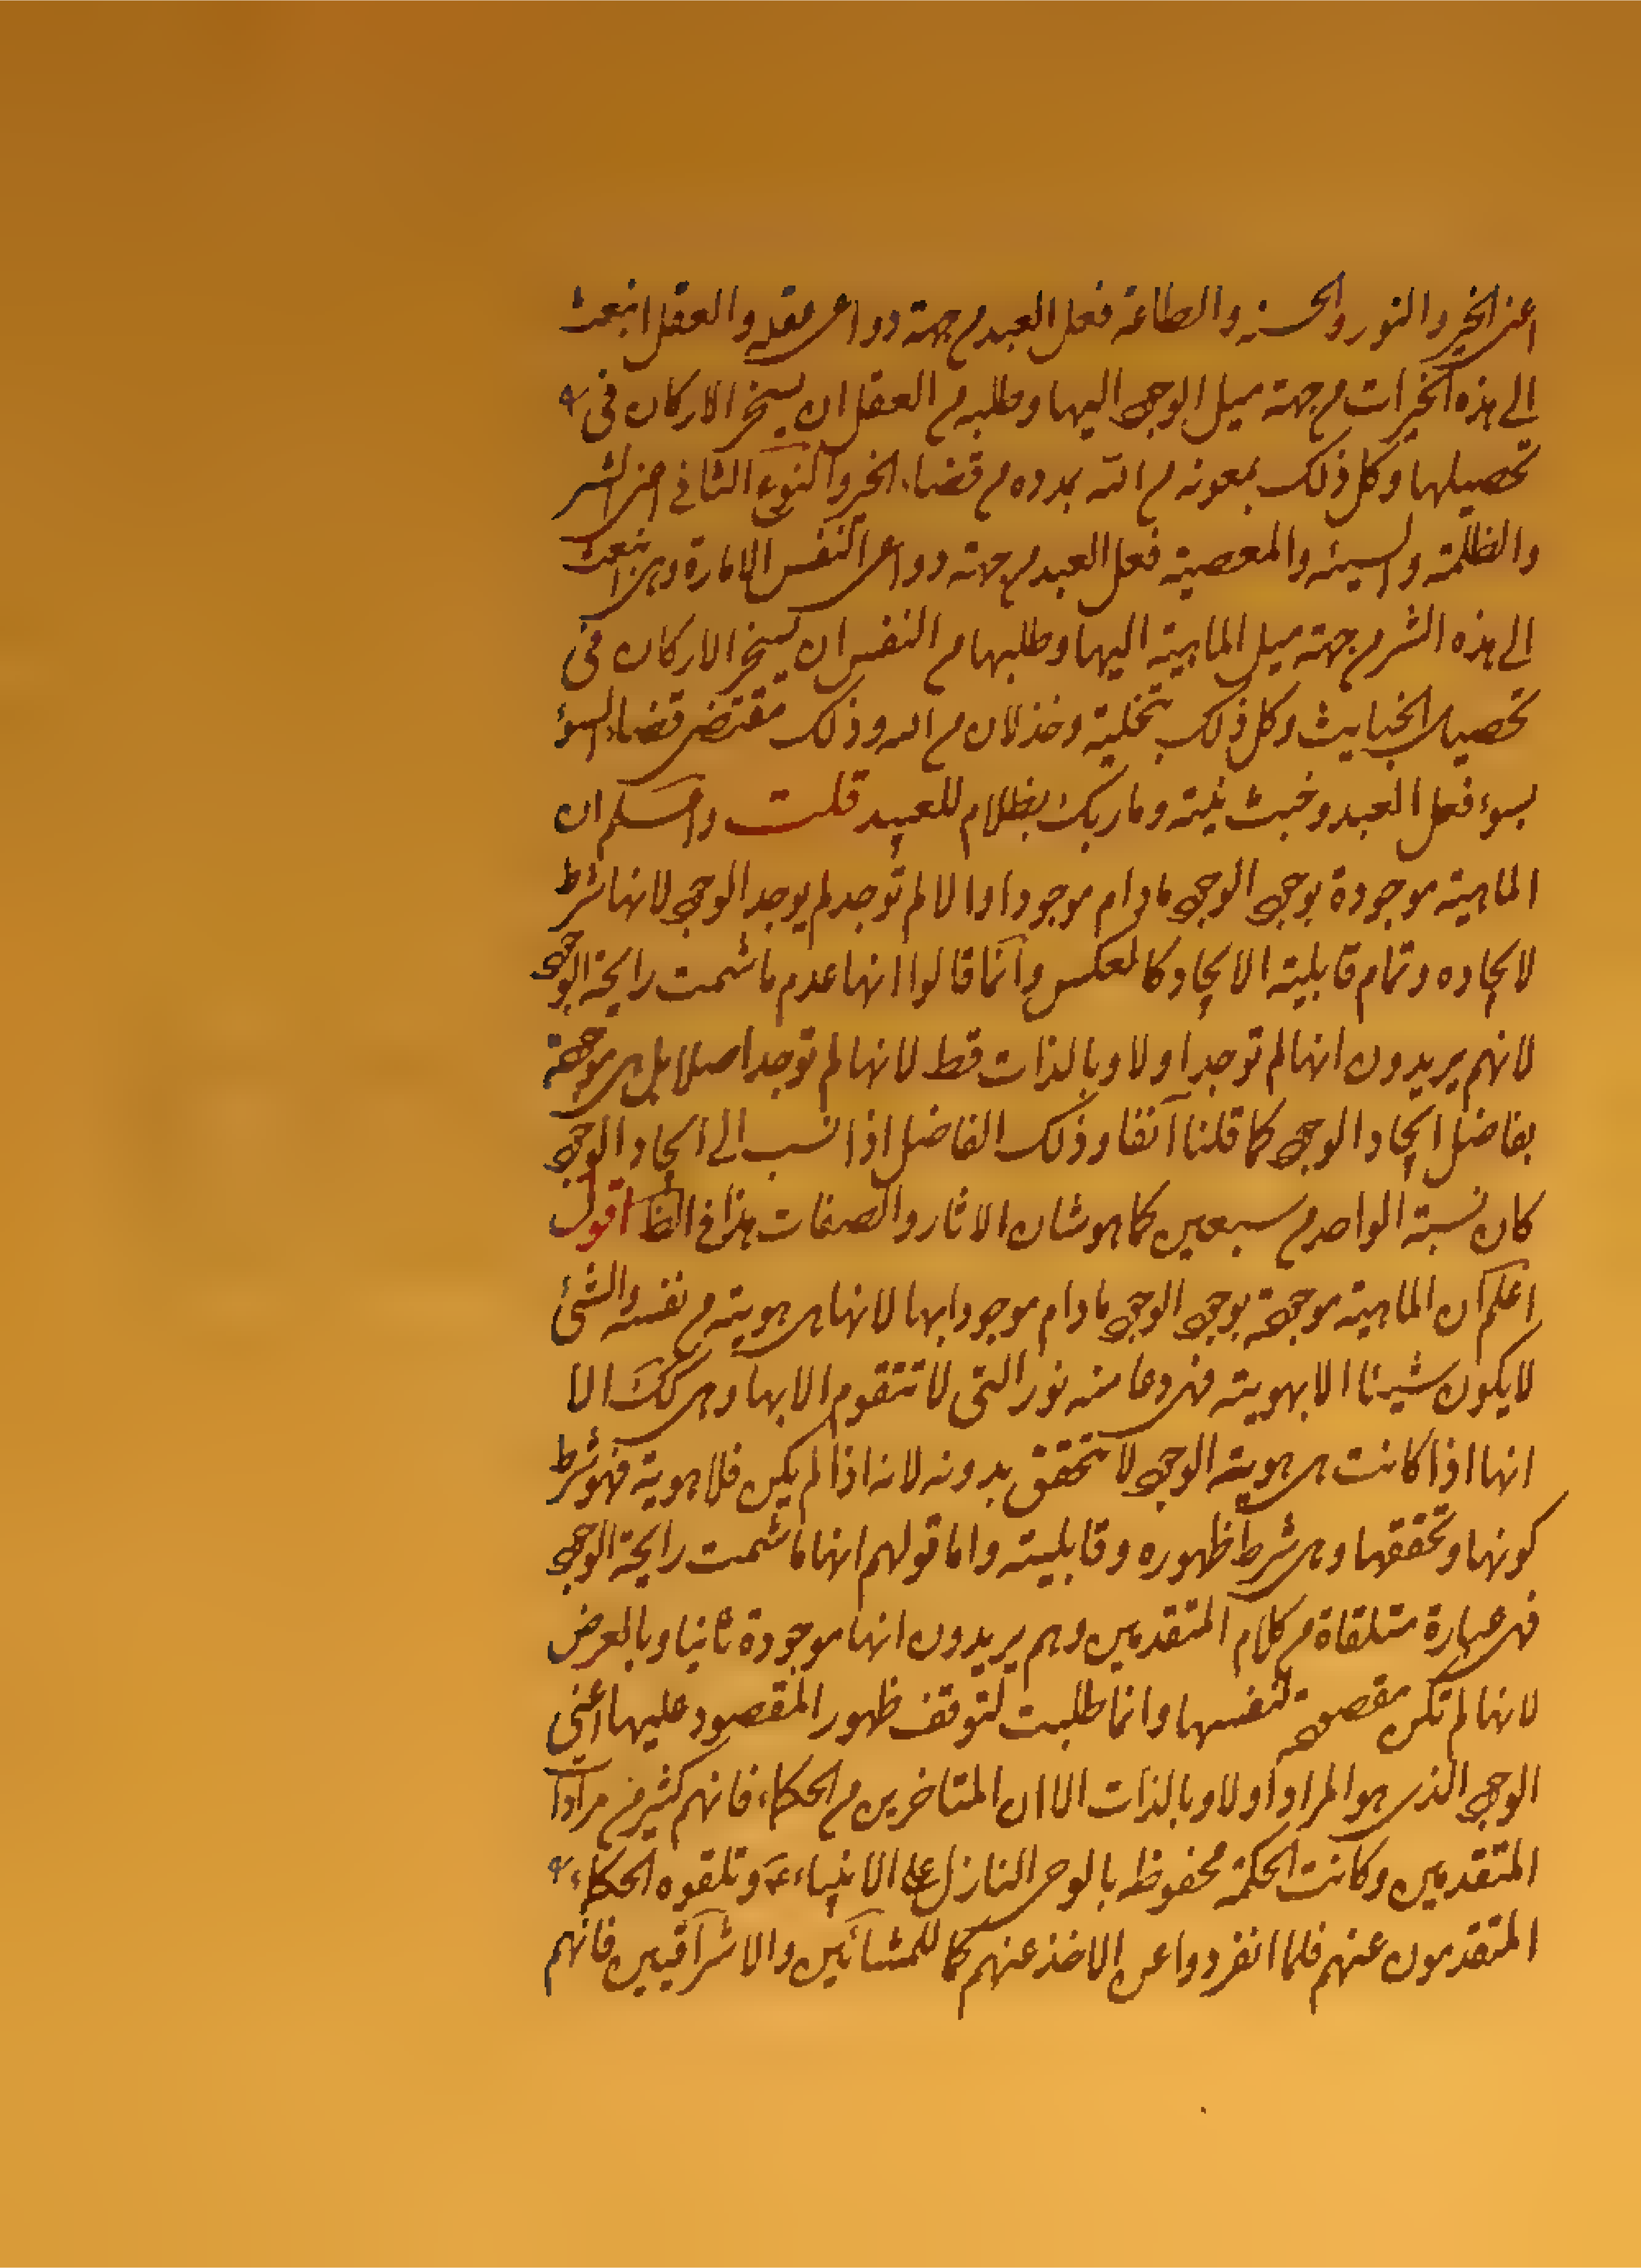 اعنى الخير والنور والحسنة والطاعة فعل العبد من جهة دواعى عقله والعقل انبعث
الى هذه الخيرات من جهة ميل الوجود اليها وطلبه من العقل ان يسخر الاركان فى
تحصيلها وكل ذلك بمعونة من الله بمدده من قضاء الخير والنوع الثانى اعنى الشر
والظلمة والسيئة والمعصية فعل العبد من جهة دواعى النفس الامارة وهى انبعثت
الى هذه الشر من جهة ميل الماهية اليها وطلبها من النفس ان يسخر الاركان فى
تحصيل الخبايث وكل ذلك بتخلية وخذلان من الله وذلك مقتضى قضاء السوء
بسوء فعل العبد وخبث نيته وما ربك بظلام للعبيد قلت واعلم ان
الماهية موجودة بوجود الوجود مادام موجودا والا لم توجد لم يوجد الوجود لانها شرط
لايجاده وتمام قابلية الايجاد كالعكس وانما قالوا انها عدم ما شمت رايحة الوجود
لانهم يريدون انها لم توجد اولا وبالذات قط لانها لم توجد اصلا بل هى موجودة
بفاضل ايجاد الوجود كما قلنا آنفا وذلك الفاضل اذا نسب الى ايجاد الوجود
كان نسبة الواحد من سبعين كما هو شان الاثار والصفات هذا فى الظ اقول
اعلم ان الماهية موجودة بوجود الوجود مادام موجودا بها لانها هى هويته من نفسه والشئ
لا يكون شيئا الا بهويته فهى دعامة نور التى لا تتقوم الا بها وهى كك الا
انها اذا كانت هى هوية الوجود لا تتحقق بدونه لانه اذا لم يكن فلا هوية فهو شرط
كونها وتحققها وهى شرط ظهوره وقابليته واما قولهم انها ما شمت رايحة الوجود
فهى عبارة متلقاة من كلام المتقدمين وهم يريدون انها موجودة ثانيا وبالعرض
لانها لم تكن مقصودة لنفسها وانما طلبت لتوقف ظهور المقصود عليها اعنى
الوجود الذى هو المراد اولا وبالذات الا ان المتاخرين من الحكماء فانهم كثير من مرادا
المتقدمين وكانت الحكمة محفوظة بالوحى النازل على الانبياء ع وتلقوه الحكماء
المتقدمون عنهم فلما انفردوا عن الاخذ عنهم كما للمشائين والاشراقيين فانهم